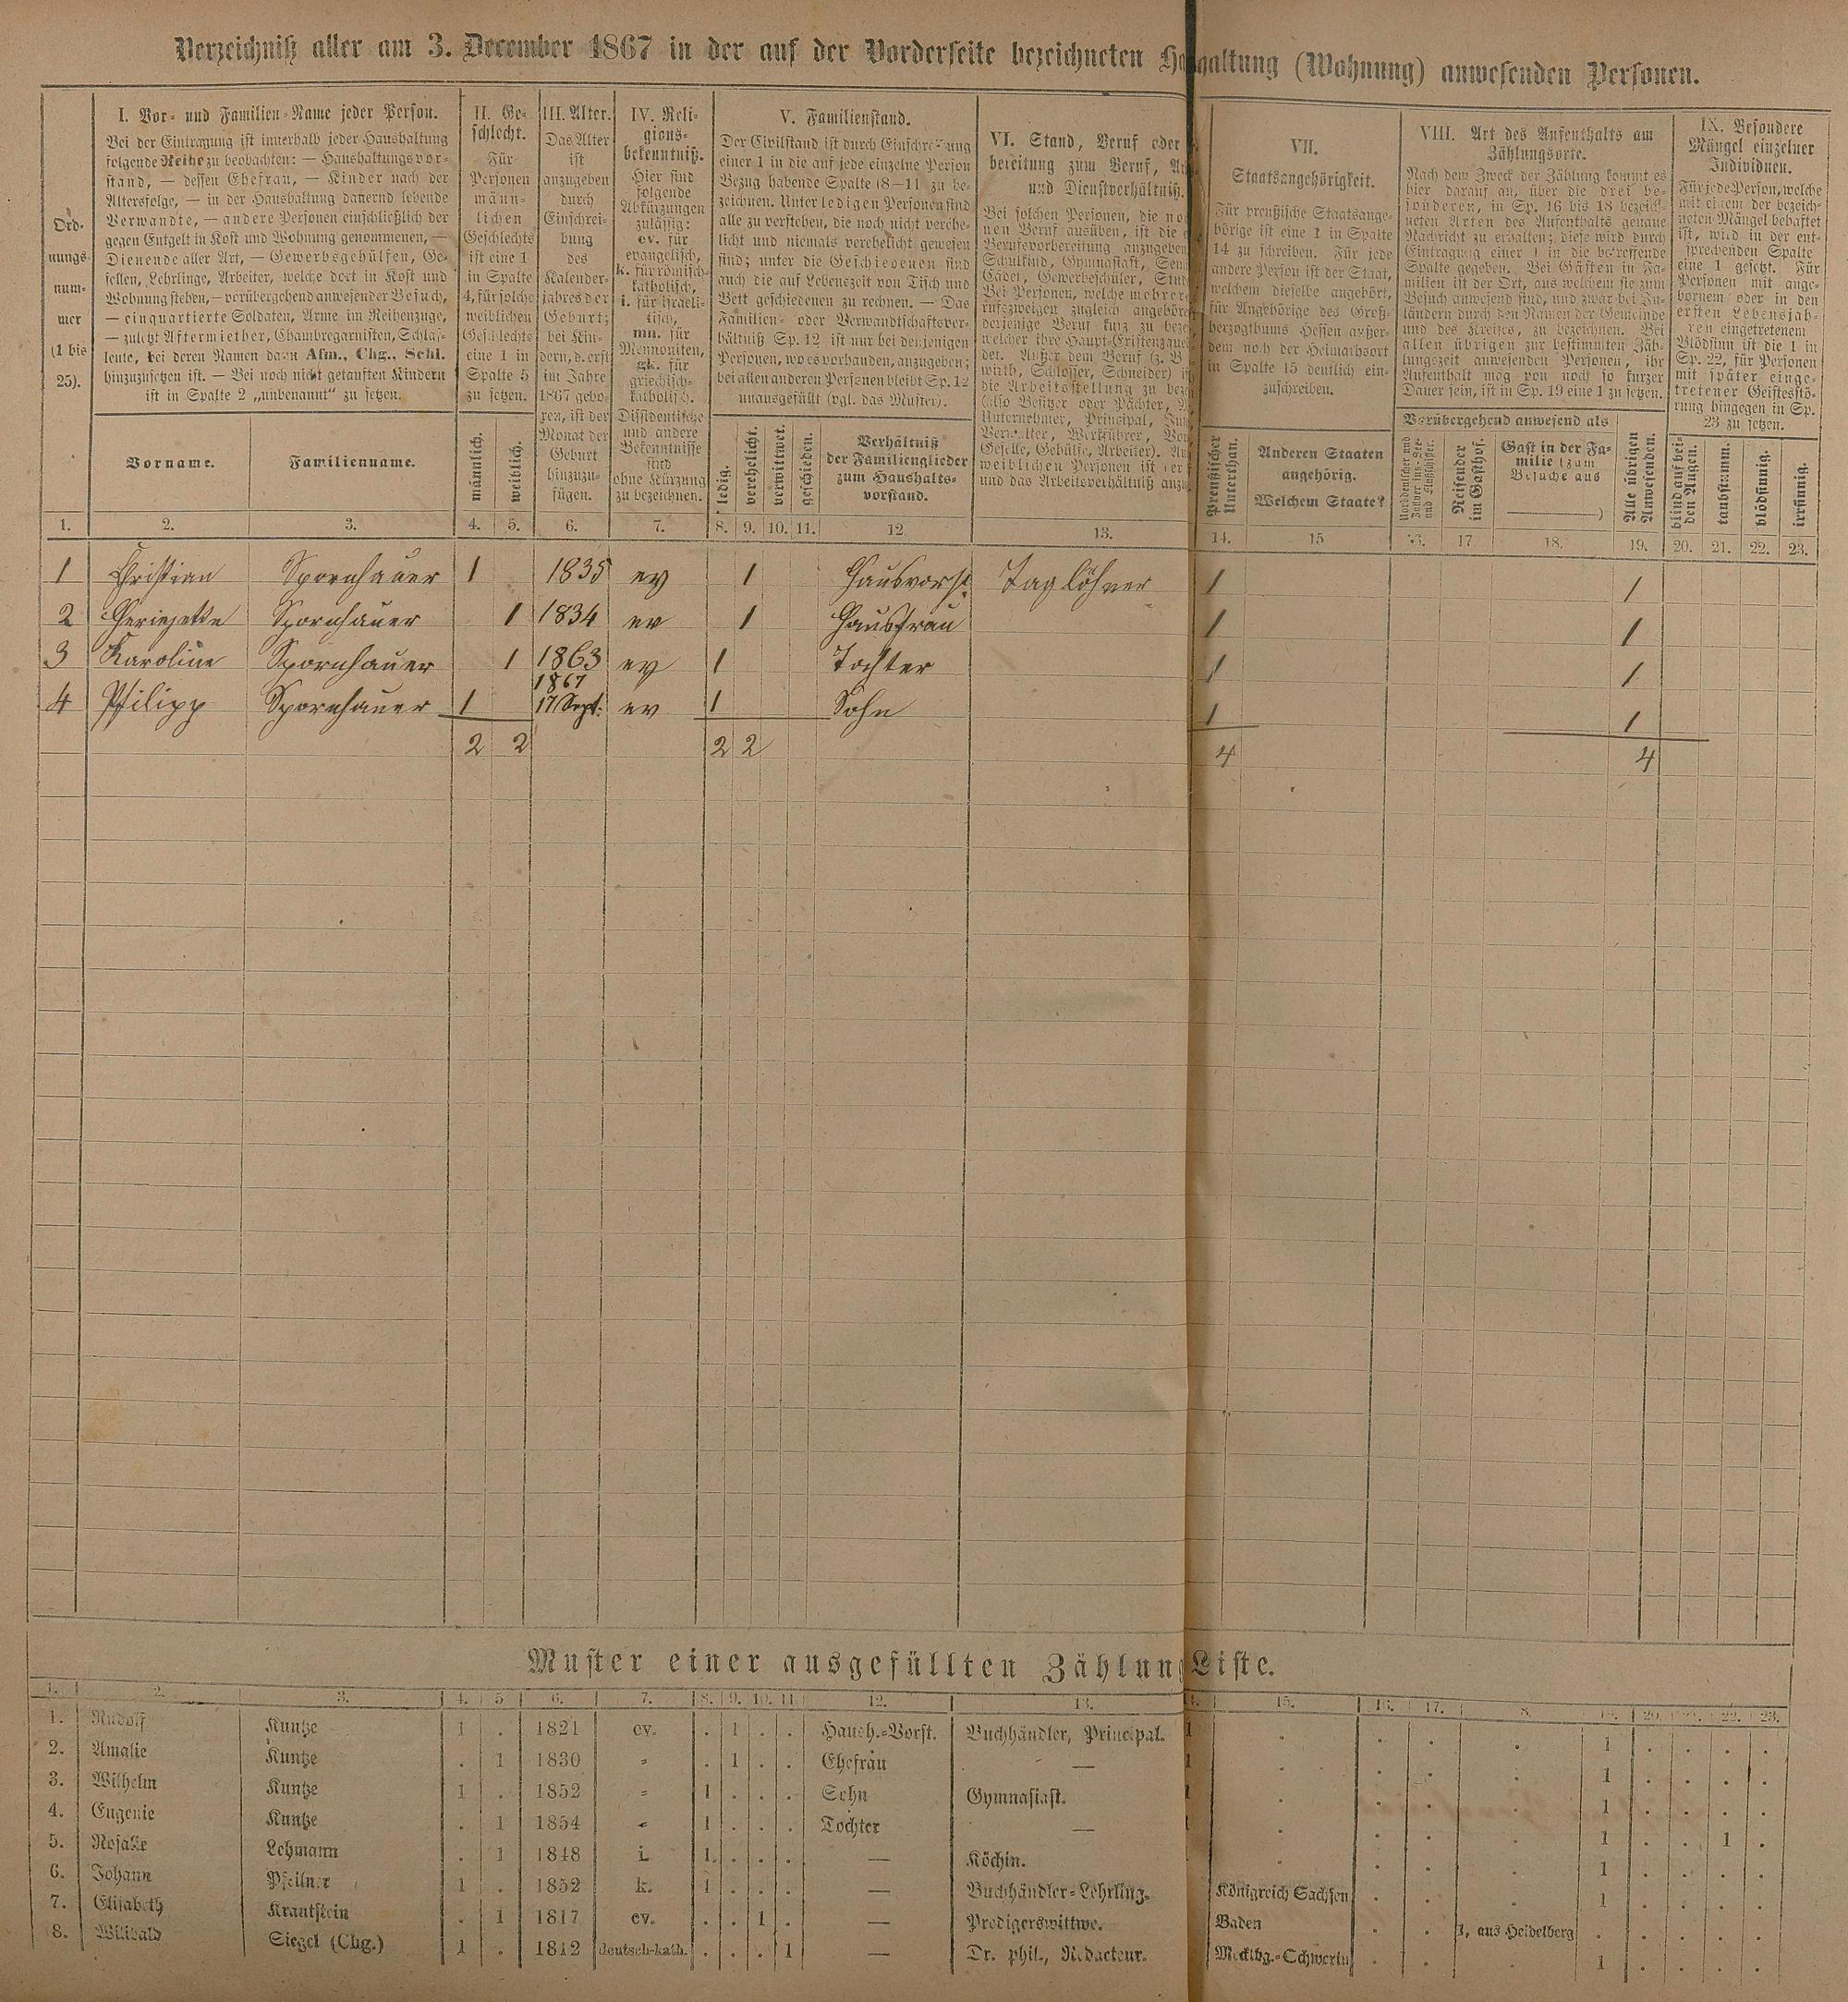 Verzeichniß aller am 3. December 1867 in der auf der Vorderseite bezeichneten Haushaltung (Wohnung) anwesenden Personen.
Ord-
nungs-
num-
mer
(1 bis
25).
I. Vor- und Familien-Name jeder Person.
Bei der Eintragung ist innerhalb jeder Haushaltung
folgende Reihe zu beobachten: — Haushaltungsvor-
stand, — dessen Ehefrau, — Kinder nach der
Altersfolge, — in der Haushaltung dauernd lebende
Verwandte, — andere Personen einschließlich der
gegen Entgelt in Kost und Wohnung genommenen, —
Dienende aller Art, — Gewerbsgehülfen, Ge-
sellen, Lehrlinge, Arbeiter, welche dort in Kost und
Wohnung stehen, — vorübergehend anwesender Besuch,
— einquartierte Soldaten, Arme im Reihenzuge,
— zuletzt Aftermiether, Chambregarnisten, Schlaf-
leute, bei deren Namen dann Afm., Chg., Schl.
hinzuzusetzen ist. — Bei noch nicht getauften Kindern
ist in Spalte 2 „unbenannt“ zu setzen.
Vorname.
Familienname.
II. Ge-
schlecht.
Für
Personen
männ-
lichen
Geschlechts
ist eine 1
in Spalte
4, für solche
weiblichen
Geschlechts
eine 1 in
Spalte 5
zu setzen.
männlich.
weiblich.
III. Alter.
Das Alter
ist
anzugeben
durch
Einschrei-
bung
des
Kalender-
jahres der
Geburt;
bei Kin-
dern, d. erst
im Jahre
1867 gebo-
ren, ist der
Monat der
Geburt
hinzuzu-
fügen.
IV. Reli-
gions-
bekenntniß.
Hier sind
folgende
Abkürzungen
zulässig:
ev. für
evangelisch,
k. für römisch-
katholisch,
i. für israeli-
tisch,
mn. für
Mennoniten,
gk. für
griechisch-
katholisch.
Dissidentische
und andere
Bekenntnisse
sind
ohne Kürzung
zu bezeichnen.
V. Familienstand.
Der Civilstand ist durch Einschreibung
einer 1 in die auf jede einzelne Person
Bezug habende Spalte (8—11) zu be-
zeichnen. Unter ledigen Personen sind
alle zu verstehen, die noch nicht verehe-
licht und niemals verehelicht gewesen
sind; unter die Geschiedenen sind
auch die auf Lebenszeit von Tisch und
Bett geschiedenen zu rechnen. — Das
Familien- oder Verwandtschaftsver-
hältniß Sp. 12 ist nur bei denjenigen
Personen, wo es vorhanden, anzugeben;
bei allen anderen Personen bleibt Sp. 12
unausgefüllt (vgl. das Muster).
ledig.
verehelicht.
verwittwet.
geschieden.
Verhältniß
der Familienglieder
zum Haushalts-
vorstand.
VI. Stand, Beruf oder
bereitung zum Beruf,
und Dienstverhältniß.
Bei solchen Personen, die
nen Beruf ausüben, ist die
Berufsvorbereitung anzugeben
Schulkind, Gymnasiast,
Cadet, Gewerbeschüler,
Bei Personen, welche mehrere
rufszweigen zugleich angehören
derjenige Beruf kurz zu
welcher ihre Haupt-Existenzquelle
det. Außer dem Beruf (z. B.
wirth, Schlosser, Schneider)
die Arbeitsstellung zu
(also Besitzer oder Pächter,
Unternehmer, Principal,
Verwalter, Werkführer,
Geselle, Gehülfe, Arbeiter).
weiblichen Personen ist der
und das Arbeitsverhältniß
VII.
Staatsangehörigkeit.
Für preußische Staatsange-
hörige ist eine 1 in Spalte
14 zu schreiben. Für jede
andere Person ist der Staat,
welchem dieselbe angehört,
für Angehörige des Groß-
herzogthums Hessen außer-
dem noch der Heimathsort
in Spalte 15 deutlich ein-
zuschreiben.
Preußischer
Unterthan.
Anderen Staaten
angehörig.
Welchem Staate?
VIII. Art des Aufenthalts am
Zählungsorte.
Nach dem Zweck der Zählung kommt es
hier darauf an, über die drei be-
sonderen, in Sp. 16 bis 18 bezeich-
neten Arten des Aufenthalts genaue
Nachricht zu erhalten; diese wird durch
Eintragung einer 1 in die betreffende
Spalte gegeben. Bei Gästen in Fa-
milien ist der Ort, aus welchem sie zum
Besuch anwesend sind, und zwar bei In-
ländern durch den Namen der Gemeinde
und des Kreises, zu bezeichnen. Bei
allen übrigen zur bestimmten Zäh-
lungszeit anwesenden Personen, ihr
Aufenthalt mag von noch so kurzer
Dauer sein, ist in Sp. 19 eine 1 zu setzen.
Vorübergehend anwesend als
Reisender
im Gasthof.
Gast in der Fa-
milie (zum
Besuche aus
)
Alle übrigen
Anwesenden.
IX. Besondere
Mängel einzelner
Individuen.
Für jede Person, welche
mit einem der bezeich-
neten Mängel behaftet
ist, wird in der ent-
sprechenden Spalte
eine 1 gesetzt. Für
Personen mit ange-
bornem oder in den
ersten Lebensjah-
ren eingetretenem
Blödsinn ist die 1 in
Sp. 22, für Personen
mit später einge-
tretener Geistesstö-
rung hingegen in Sp.
23 zu setzen.
blind auf bei-
den Augen.
taubstumm.
blödsinnig.
irrsinnig.
1. 2. 3. 4. 5. 6. 7. 8. 9. 10. 11. 12 13. 14. 15 16. 17. 18. 19. 20. 21. 22. 23.
1 Christian Spornhauer 1 1835 ev 1 Hausvorst. Taglöhner 1 1
2 Heriezette Spornhauer 1 1834 ev 1 Hausfrau 1 1
3 Karoline Spornhauer 1 1863 ev 1 Tochter 1 1
4 Philipp Spornhauer 1 1867 17 Sept. ev 1 Sohn 1 1
2 2 2 2 4 4
Muster einer ausgefüllten Zählungs-Liste.
1. 2. 3. 4. 5 6. 7. 8. 9. 10. 11 12. 13. 15. 16. 17. 8. 19. 20. 21. 22. 23.
1. Rudolf Kuntze 1 . 1821 ev. . 1 . . Haush.-Vorst. Buchhändler, Principal. 1 . . . . 1 . . . .
2. Amalie Kuntze . 1 1830 = . 1 . . Ehefrau — 1 . . . . 1 . . . .
3. Wilhelm Kuntze 1 . 1852 = 1 . . . Sohn Gymnasiast. 1 . . . . 1 . . . .
4. Eugenie Kuntze . 1 1854 = 1 . . . Tochter — 1 . . . . 1 . . 1 .
5. Rosalie Lehmann . 1 1848 i. 1 . . . — Köchin. 1 . . . . 1 . . . .
6. Johann Pfeilner 1 . 1852 k. 1 . . . — Buchhändler-Lehrling. Königreich Sachsen . . . 1 . . . .
7. Elisabeth Krautstein . 1 1817 ev. . . 1 . — Predigerswittwe. Baden . . 1, aus Heidelberg . . . . .
8. Willibald Siegel (Chg.) 1 . 1812 deutsch-kath. . . . 1 — Dr. phil., Redacteur. Mecklbg.-Schwerin . . . 1 . . . .